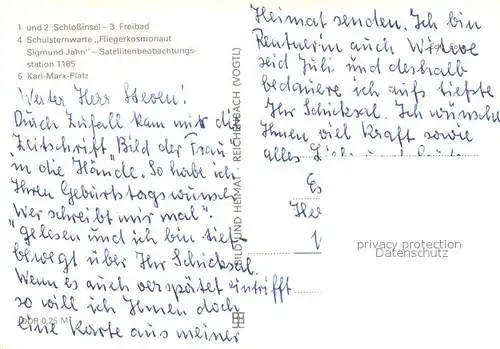 1 und 2 Schloßinsel – 3 Freibad
4 Schulsternwarte „Fliegerkosmonaut
Sigmund Jähn" – Satellitenbeobachtungs-
station 1185
5 Karl-Marx-Platz
Werter Herr Steven!
Durch Zufall kam mir die
Zeitschrift „Bild der Frau"
in die Hände. So habe ich
Ihren Geburtstagswunsch
„Wer schreibt mir mal".
gelesen und ich bin tief
bewegt über Ihr Schicksal.
Wenn es auch verspätet eintrifft
so will ich Ihnen doch
eine Karte aus meiner
DDR 0,25 M
BILD UND HEIMAT · REICHENBACH (VOGTL)
Heimat senden. Ich bin
Rentnerin auch Witwe
seid Juli und deshalb
bedaure ich aufs tiefste
Ihr Schicksal. Ich wünsche
Ihnen viel Kraft sowie
alles
Es
Her
privacy protection
Datenschutz